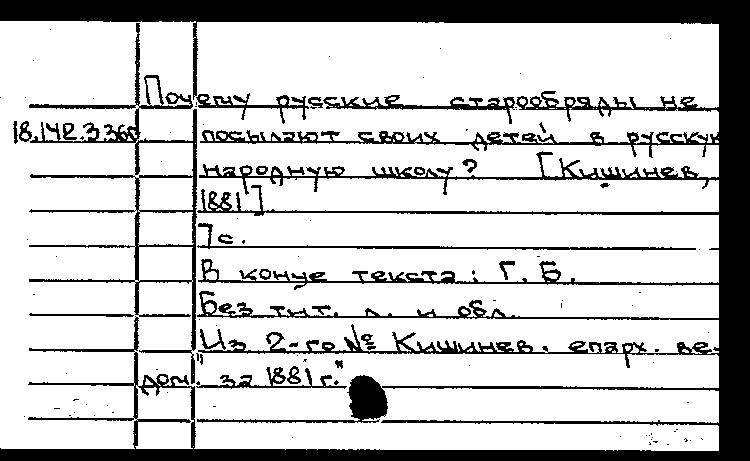 Почему русские старообряды не
18.142.3.360 посылают своих детей в русскую
народную школу? [Кишинев,
1881]
7 с.
В конце текста: Г. Б.
Без тит. л. и обл.
Из 2-го № "Кишинев. епарх. ве-
дом." за 1881 г.